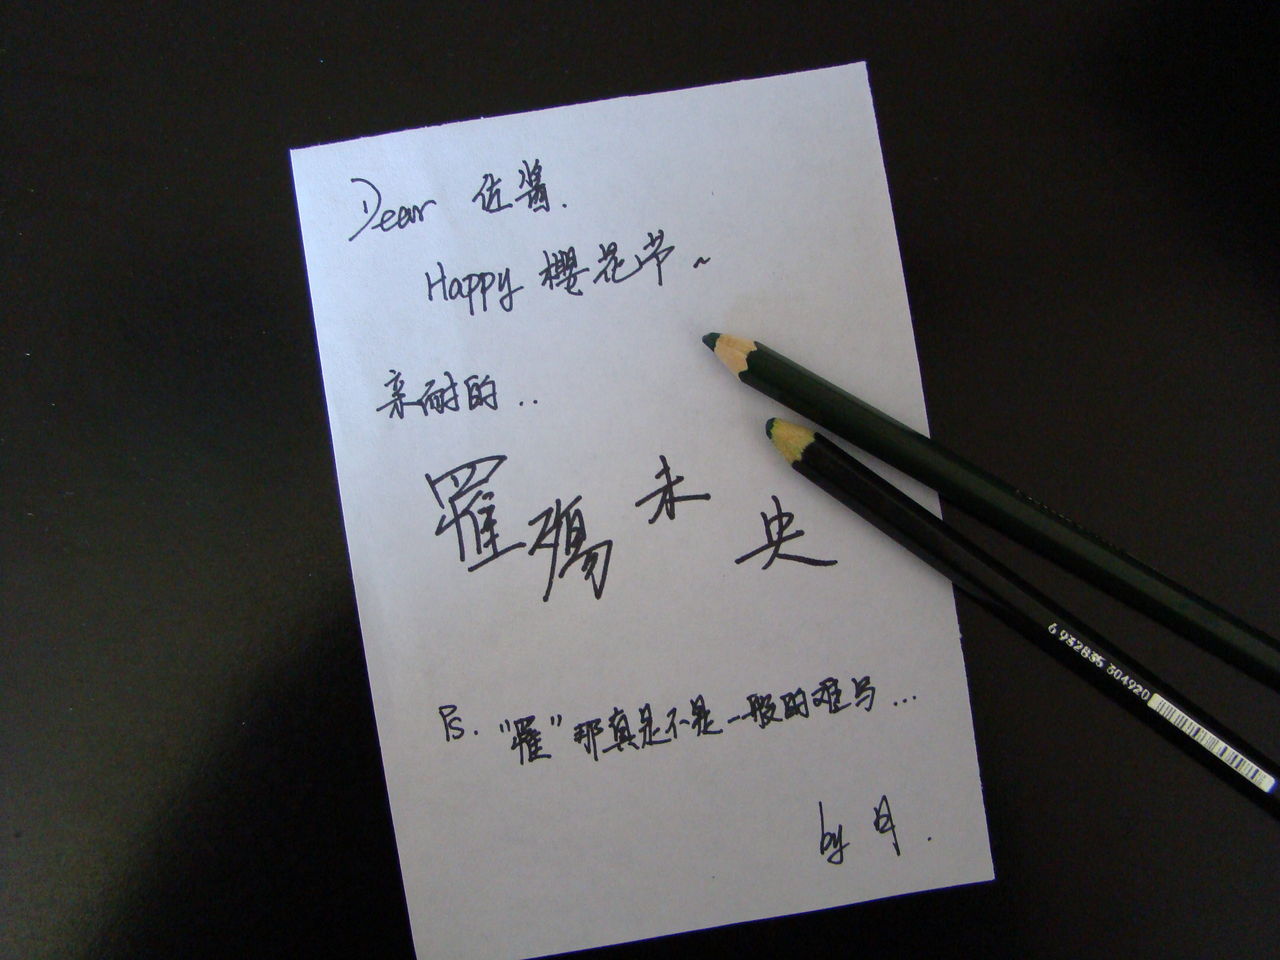 Dear 佐酱.
Happy 樱花节~
亲耐的..
罹殇未央
Ps. "罹"那真是不是一般的难写...
by 月.
6 932835 304920